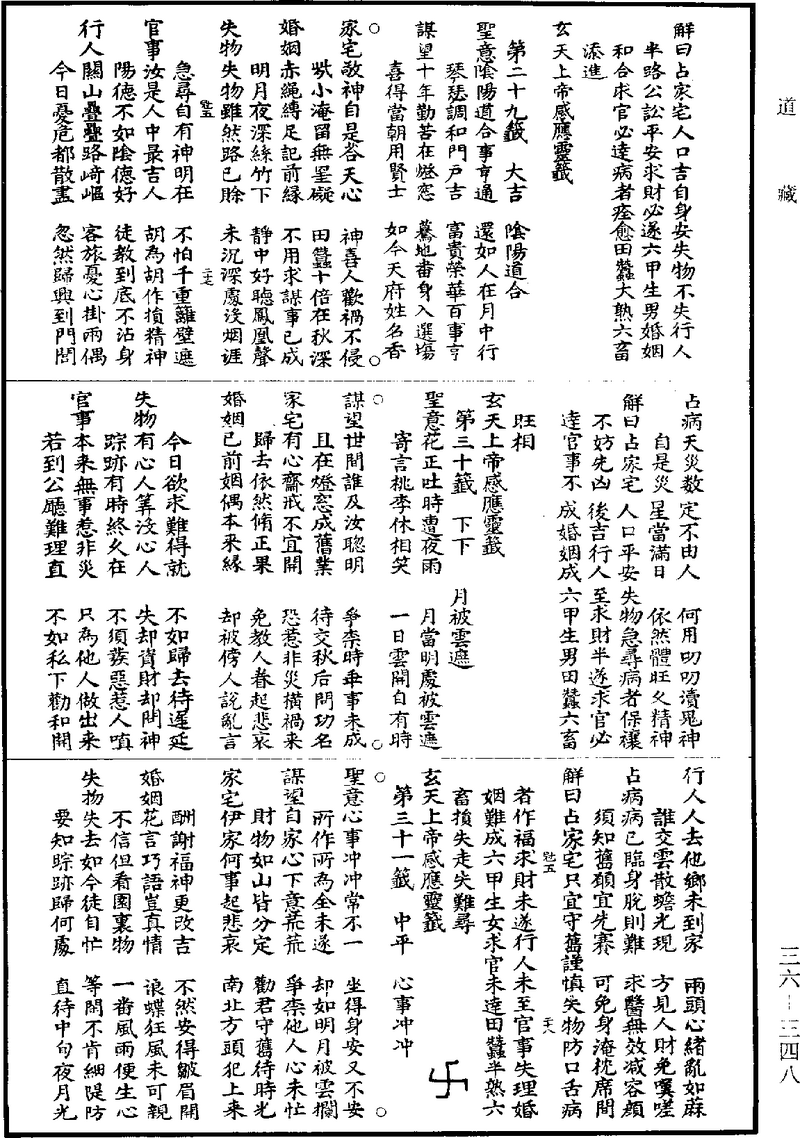 道藏
解曰占家宅人口吉自身安失物不失行人
半路公訟平安求財必遂六甲生男婚姻
和合求官必達病者痊愈田蠶大熟六畜
添進
玄天上帝感應靈籤
第二十九籤 大吉 陰陽道合
聖意陰陽道合事亨通 還如人在月中行
琴瑟調和門戶吉 富貴榮華百事亨
謀望十年勤苦在燈窓 驀地番身入選場
喜得當朝用賢士 如今天府姓名香
○ ○
家宅敬神自是荅天心 神喜人歡禍不侵
些小淹留無罣礙 田蠶十倍在秋深
婚姻赤繩縛足記前緣 不用求謀事已成
明月夜深絲竹下 靜中好聽鳳凰聲
失物失物雖然路已賒 未沉深處沒烟涯
急尋自有神明在 不怕千重籬壁遮
官事汝是人中最吉人 胡為胡作損精神
陽德不如陰德好 徒教到底不沾身
行人關山疊疊路崎嶇 客旅憂心掛兩偶
今日憂危都散盡 忽然歸興到門閭
占病天災數定不由人 何用叨叨瀆鬼神
自是災星當滿日 依然體旺又精神
解曰占家宅人口平安失物急尋病者保禳
不妨先凶後吉行人至求財半遂求官必
達官事不成婚姻成六甲生男田蠶六畜
旺相
玄天上帝感應靈籤
第三十籤 下下 月被雲遮
聖意花正吐時遭夜雨 月當明處被雲遮
寄言桃李休相笑 一日雲開自有時
○ ○
謀望世間誰及汝聰明 爭柰時乖事未成
且在燈窓成舊業 待交秋后問功名
家宅有心齋戒不宜開 恐惹非災橫禍来
歸去依然脩正果 免教人眷起悲哀
婚姻已前姻偶本来緣 却被傍人說亂言
今日欲求難得就 不如歸去待遲延
失物有心人筭沒心人 失却資財却問神
踪跡有時終久在 不須蓑惡惹人嗔
官事本来無事惹非災 只為他人做出来
若到公廳難理直 不如私下勸和開
行人人去他鄉未到家 兩頭心緒亂如蔴
誰交雲散蟾光現 方見人財免嘆嗟
占病病已臨身脫則難 求醫無效減容顏
須知舊願宜先賽 可免身淹枕席間
解曰占家宅只宜守舊謹慎失物防口舌病
者作福求財未遂行人未至官事失理婚
姻難成六甲生女求官未達田蠶半熟六
畜損失走失難尋
玄天上帝感應靈籤 卐
第三十一籤 中平 心事冲冲
○ ○
聖意心事冲冲常不一 坐得身安又不安
所作所為全未遂 却如明月被雲攔
謀望自家心下意荒荒 爭柰他人心未忙
財物如山皆分定 勸君守舊待時光
家宅伊家何事起悲哀 南北方頭犯上来
酬謝福神更改吉 不然安得皺眉開
婚姻花言巧語豈真情 浪蝶狂風未可親
不信但看園裏物 一番風雨便生心
失物失去如今徒自忙 等閒不肯細隄防
要知踪跡歸何處 直待中旬夜月光
三六—三四八